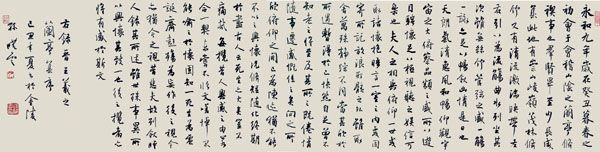 永和九年歲在癸丑暮春之
初會于會稽山陰之蘭亭脩
禊事也羣賢畢至少長咸
集此地有崇山峻領茂林脩
竹又有清流激湍暎帶左
右引以為流觴曲水列坐其
次雖無絲竹管弦之盛一觴
一詠亦足以暢敘幽情是日也
天朗氣清惠風和暢仰觀宇
宙之大俯察品類之盛所以遊
目騁懷足以極視聽之娛信可
樂也夫人之相與俯仰一世或
取諸懷抱悟言一室之內或因
寄所託放浪形骸之外雖趣
舍萬殊靜躁不同當其欣於
所遇暫得於己快然自足不
知老之將至及其所之既倦情
隨事遷感慨係之矣向之所
欣俛仰之間以為陳迹猶不能不
以之興懷況脩短隨化終期
於盡古人云死生亦大矣豈不
痛哉每攬昔人興感之由若
合一契未嘗不臨文嗟悼不
能喻之於懷固知一死生為虛
誕齊彭殤為妄作後之視今
亦猶今之視昔悲夫故列敘時
人錄其所述雖世殊事異所
以興懷其致一也後之攬者亦
將有感於斯文
右錄晉王羲之
蘭亭集序
己丑年夏於金陵
孫曉雲